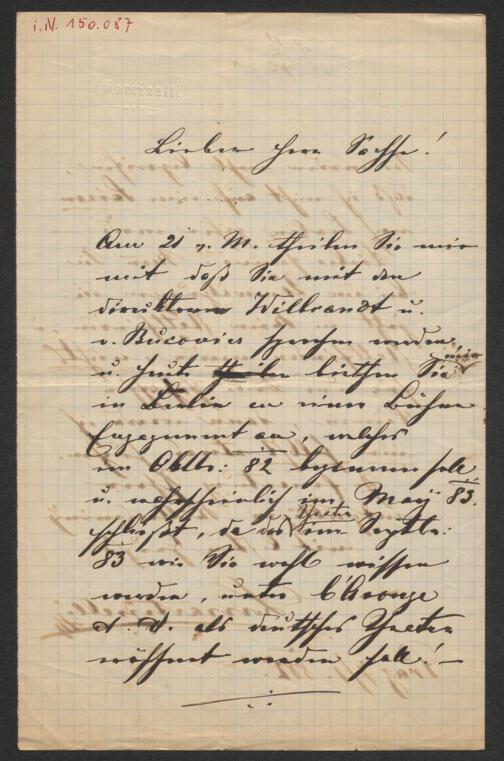 i.N. 150.087
Martinelli
Lieber Herr Sachse!
Am 21 v. M. theilen Sie mir
mit daß Sie mit den
Direktoren Wilbrandt u.
v. Bucovics sprechen werden
u. heute biethen Sie mir
in Berlin an einer Bühne
Engagement an, welches
im Oktb: 82 beginnen soll
u. wahrscheinlich im May 83.
schließt, da das Theater im Septb:
83 wie Sie wohl wissen
werden, unter L'Aronge
als deutsches Theater
eröffnet werden soll! —